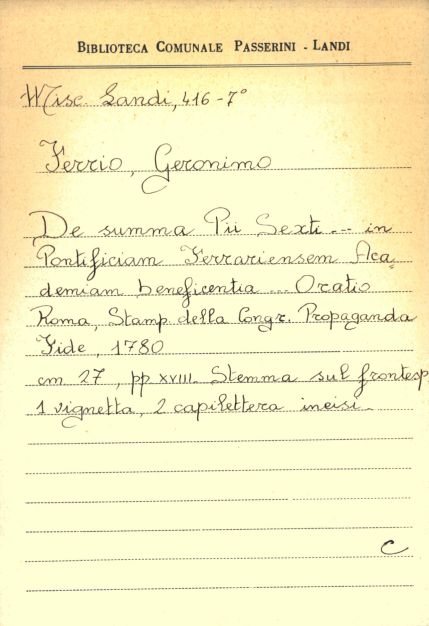 BIBLIOTECA COMUNALE PASSERINI - LANDI
Misc. Landi, 416-7°
Ferrio, Geronimo
De summa Pii Sexti... in
Pontificiam Ferrariensem Aca=
demiam beneficentia ... Oratio
Roma, Stamp. della Congr. Propaganda
Fide, 1780
cm 27, pp XVIII. Stemma sul frontesp.
1 vignetta, 2 capilettera incisi.
C